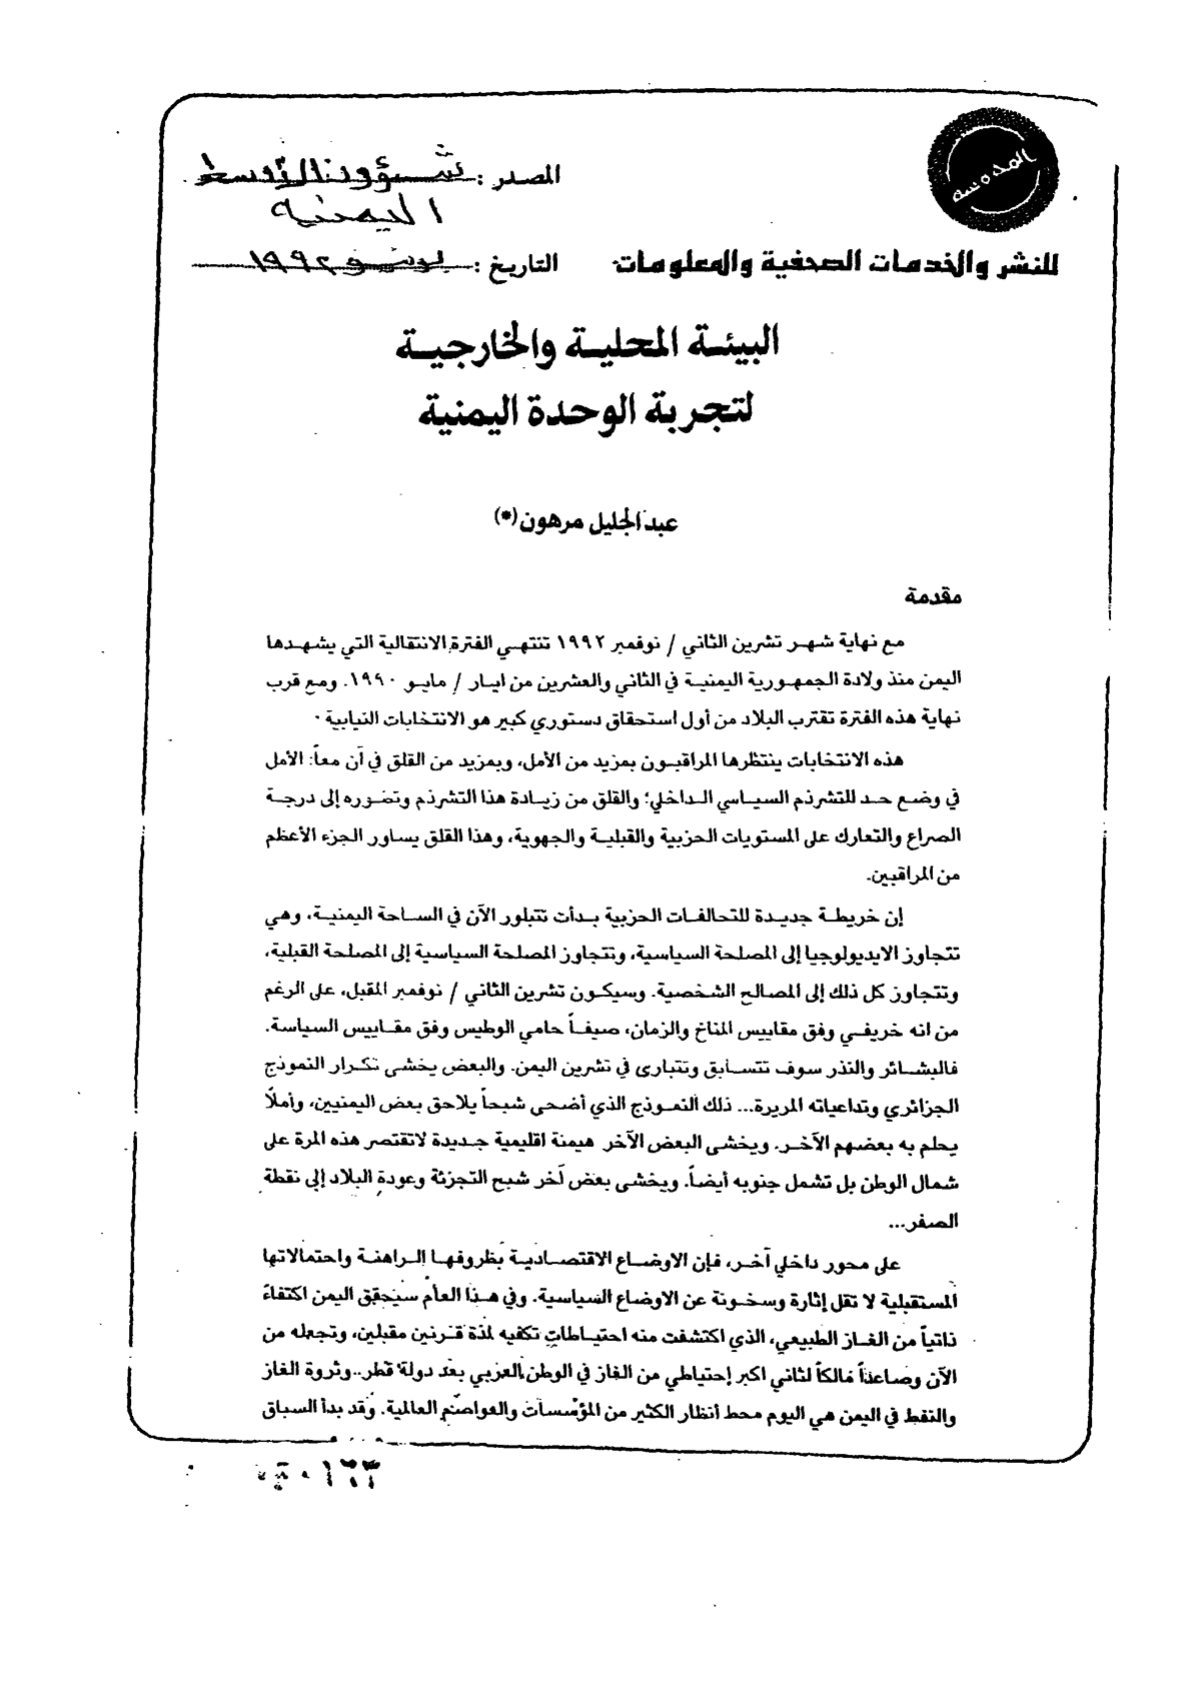 المدوسه
المصدر: شؤون الأوسط
اليمنيه
للنشر والخدمات الصحفية والمعلومات
التاريخ: يونيو ١٩٩٢
البيئة المحلية والخارجية
لتجربة الوحدة اليمنية
عبدالجليل مرهون(*)
مقدمة
مع نهاية شهر تشرين الثاني / نوفمبر ١٩٩٢ تنتهي الفترة الانتقالية التي يشهدها
اليمن منذ ولادة الجمهورية اليمنية في الثاني والعشرين من ايار / مايو ١٩٩٠. ومع قرب
نهاية هذه الفترة تقترب البلاد من أول استحقاق دستوري كبير هو الانتخابات النيابية ٠
هذه الانتخابات ينتظرها المراقبون بمزيد من الأمل، وبمزيد من القلق في آن معاً: الأمل
في وضع حد للتشرذم السياسي الداخلي؛ والقلق من زيادة هذا التشرذم وتضوره إلى درجة
الصراع والتعارك على المستويات الحزبية والقبلية والجهوية، وهذا القلق يساور الجزء الأعظم
من المراقبين.
إن خريطة جديدة للتحالفات الحزبية بدأت تتبلور الآن في الساحة اليمنية، وهي
تتجاوز الايديولوجيا إلى المصلحة السياسية، وتتجاوز المصلحة السياسية إلى المصلحة القبلية،
وتتجاوز كل ذلك إلى المصالح الشخصية. وسيكون تشرين الثاني / نوفمبر المقبل، على الرغم
من انه خريفي وفق مقاييس المناخ والزمان، صيفاً حامي الوطيس وفق مقاييس السياسة.
فالبشائر والنذر سوف تتسابق وتتبارى في تشرين اليمن. والبعض يخشى تكرار النموذج
الجزائري وتداعياته المريرة... ذلك النموذج الذي أضحى شبحاً يلاحق بعض اليمنيين، وأملاً
يحلم به بعضهم الآخر. ويخشى البعض الآخر هيمنة اقليمية جديدة لاتقتصر هذه المرة على
شمال الوطن بل تشمل جنوبه أيضاً. ويخشى بعض آخر شبح التجزئة وعودة البلاد إلى نقطة
الصفر...
على محور داخلي آخر، فإن الاوضاع الاقتصادية بظروفها الراهنة واحتمالاتها
المستقبلية لا تقل إثارة وسخونة عن الاوضاع السياسية. وفي هذا العام سيحقق اليمن اكتفاءً
ذاتياً من الغاز الطبيعي، الذي اكتشفت منه احتياطات تكفيه لمدة قرنين مقبلين، وتجعله من
الآن وصاعداً مالكاً لثاني اكبر إحتياطي من الغاز في الوطن العربي بعد دولة قطر..وثروة الغاز
والنفط في اليمن هي اليوم محط أنظار الكثير من المؤسسات والعواصم العالمية. وقد بدأ السباق